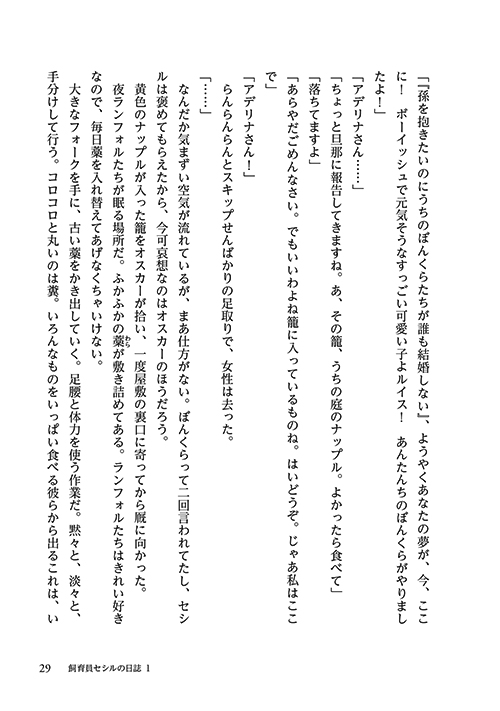 「『孫を抱きたいのにうちのぼんくらたちが誰も結婚しない』、ようやくあなたの夢が、今、ここ
に！　ボーイッシュで元気そうなすっごい可愛い子よルイス！　あんたんちのぼんくらがやりまし
たよ！」
「アデリナさん……」
「ちょっと旦那に報告してきますね。あ、その籠、うちの庭のナップル。よかったら食べて」
「落ちてますよ」
「あらやだごめんなさい。でもいいわよね籠に入っているものね。はいどうぞ。じゃあ私はここ
で」
「アデリナさん！」
らんらんらんとスキップせんばかりの足取りで、女性は去った。
「……」
なんだか気まずい空気が流れているが、まあ仕方がない。ぼんくらって二回言われてたし、セシ
ルは褒めてもらえたから、今可哀想なのはオスカーのほうだろう。
黄色のナップルが入った籠をオスカーが拾い、一度屋敷の裏口に寄ってから厩に向かった。
夜ランフォルたちが眠る場所だ。ふかふかの藁が敷き詰めてある。ランフォルたちはきれい好き
わら
なので、毎日藁を入れ替えてあげなくちゃいけない。
大きなフォークを手に、古い藁をかき出していく。足腰と体力を使う作業だ。黙々と、淡々と、
手分けして行う。コロコロと丸いのは糞。いろんなものをいっぱい食べる彼らから出るこれは、い
29 飼育員セシルの日誌 1